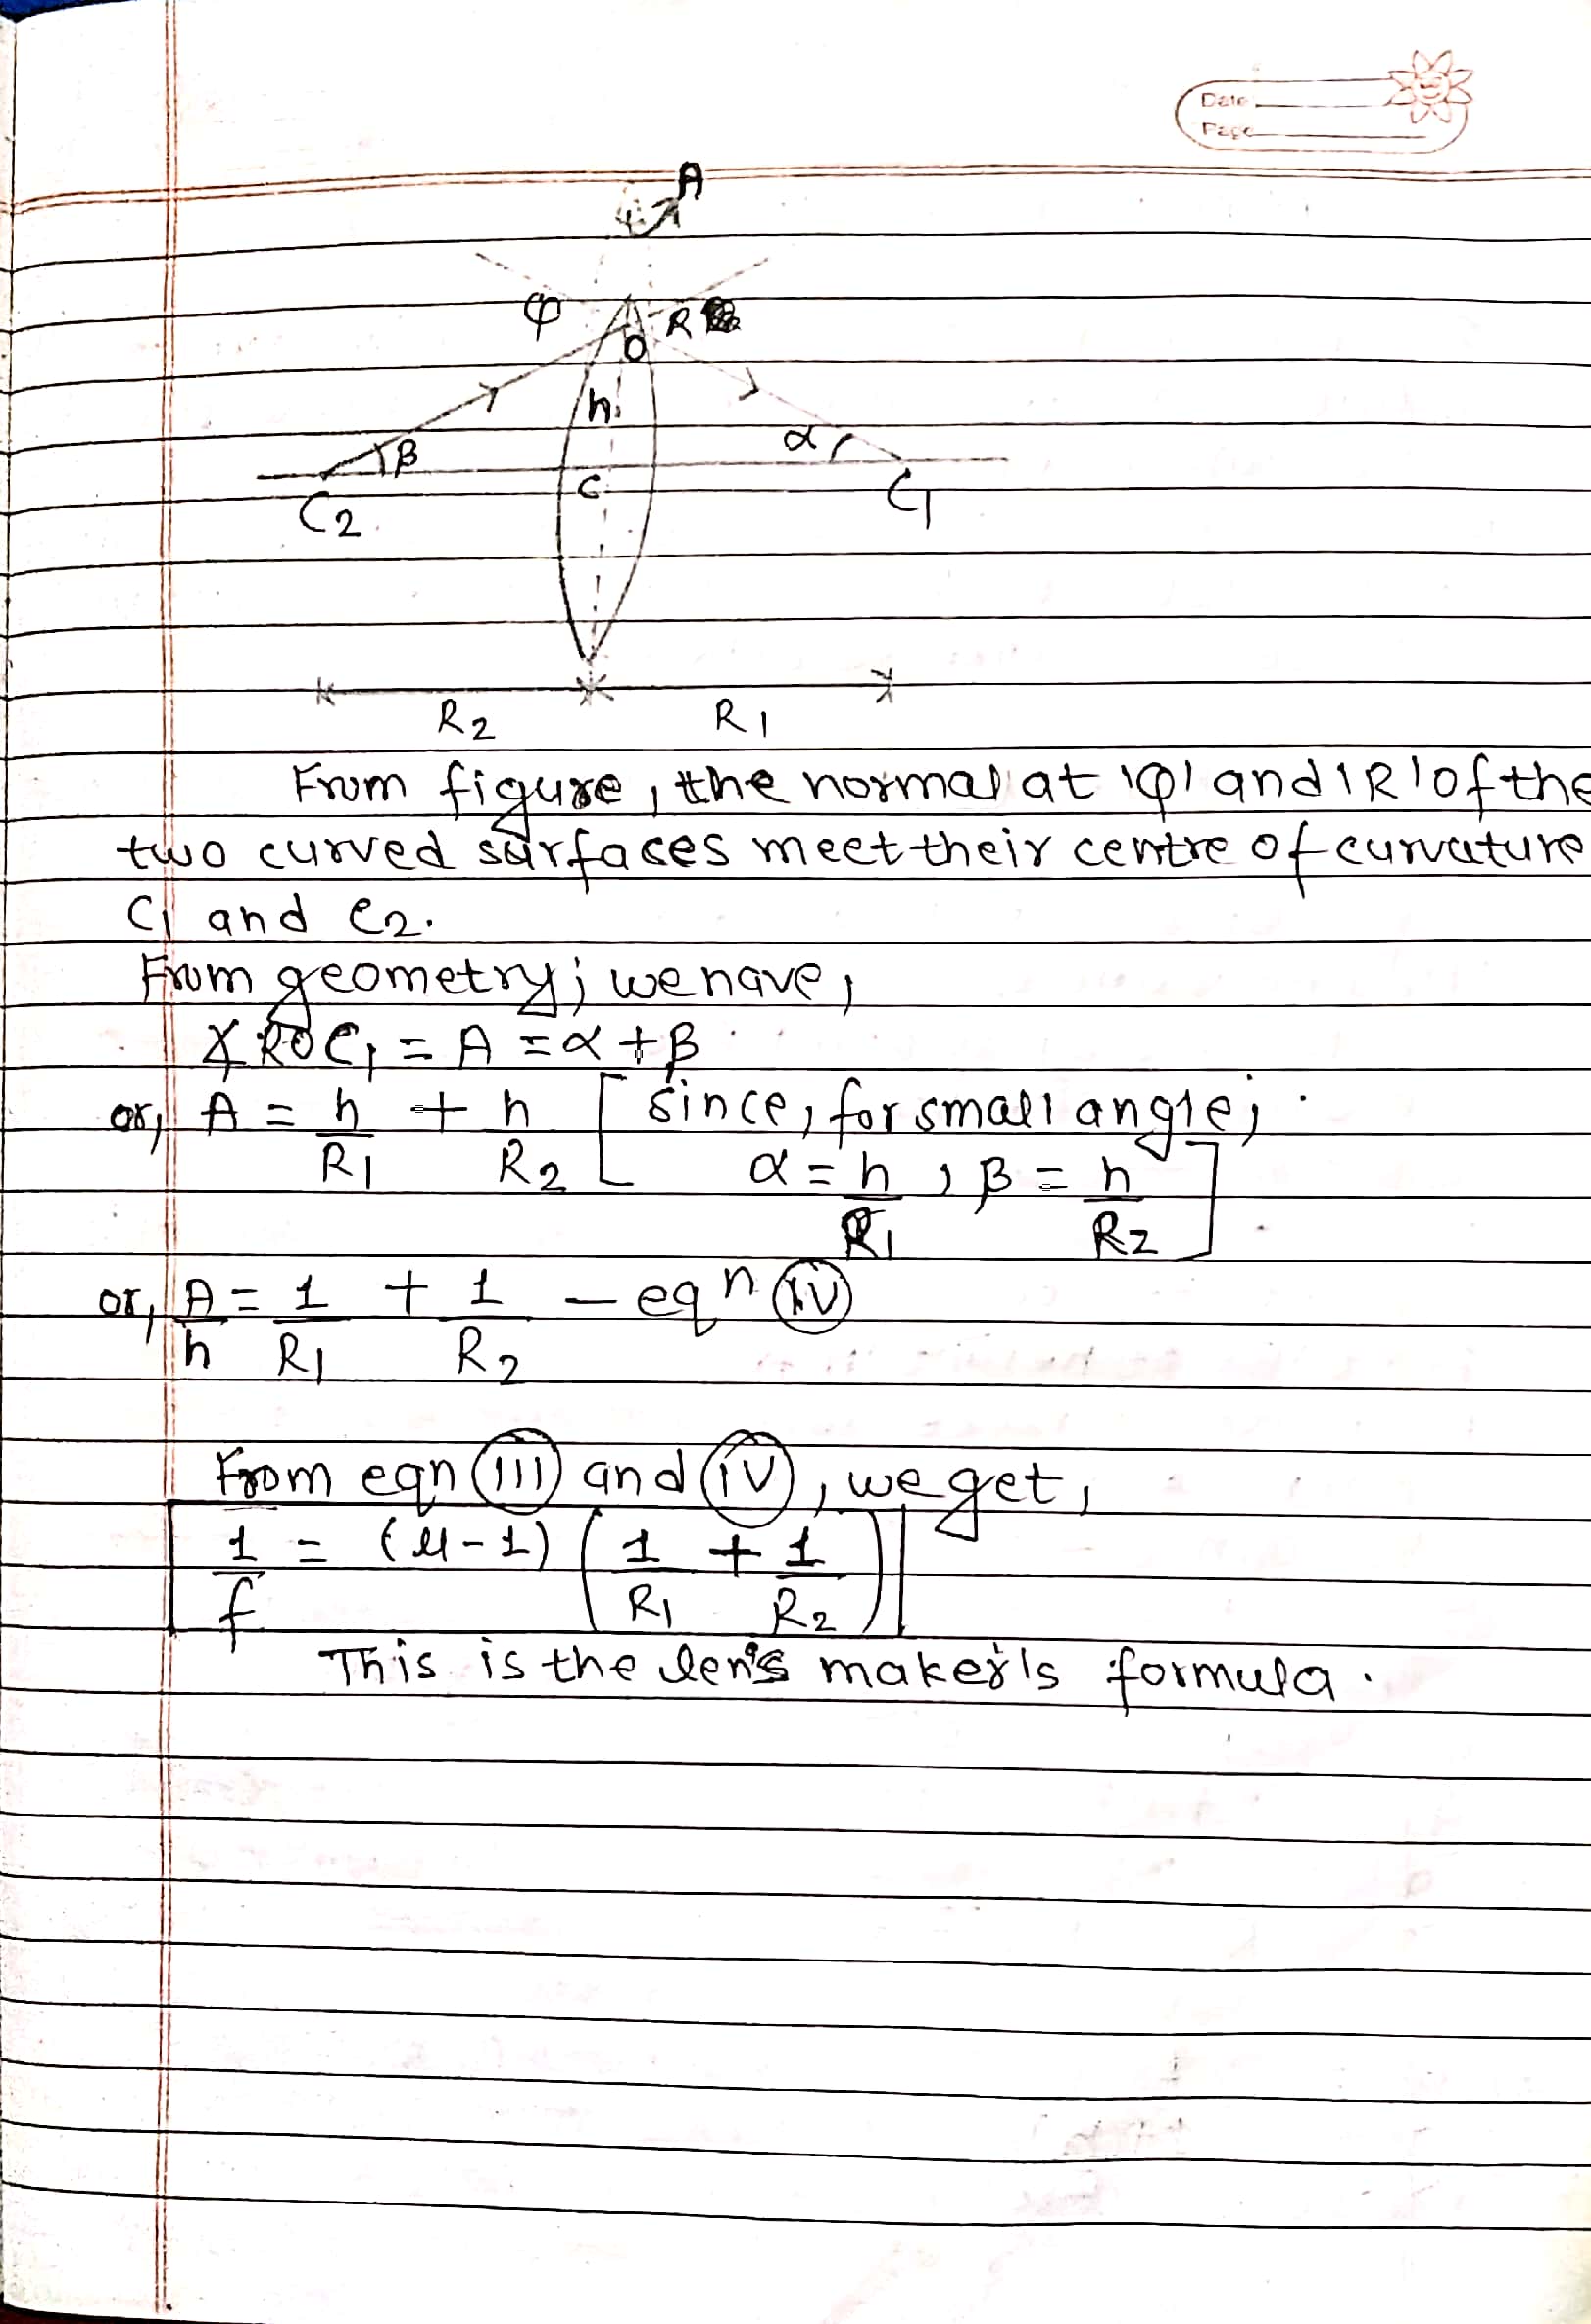 Date
Page
A
φ
R
O
h
β
α
C
C2
C1
R2
R1
From figure, the normal at 'φ' and 'R' of the
two curved surfaces meet their centre of curvature
C1 and C2.
From geometry; we have,
∡ROC1 = A = α + β
or, A = h/R1 + h/R2 [since, for small angle;
α = h/R1, β = h/R2]
or, A/h = 1/R1 + 1/R2 — eqn (iv)
From eqn (iii) and (iv), we get,
1/f = (μ-1) (1/R1 + 1/R2)
This is the len's maker's formula.